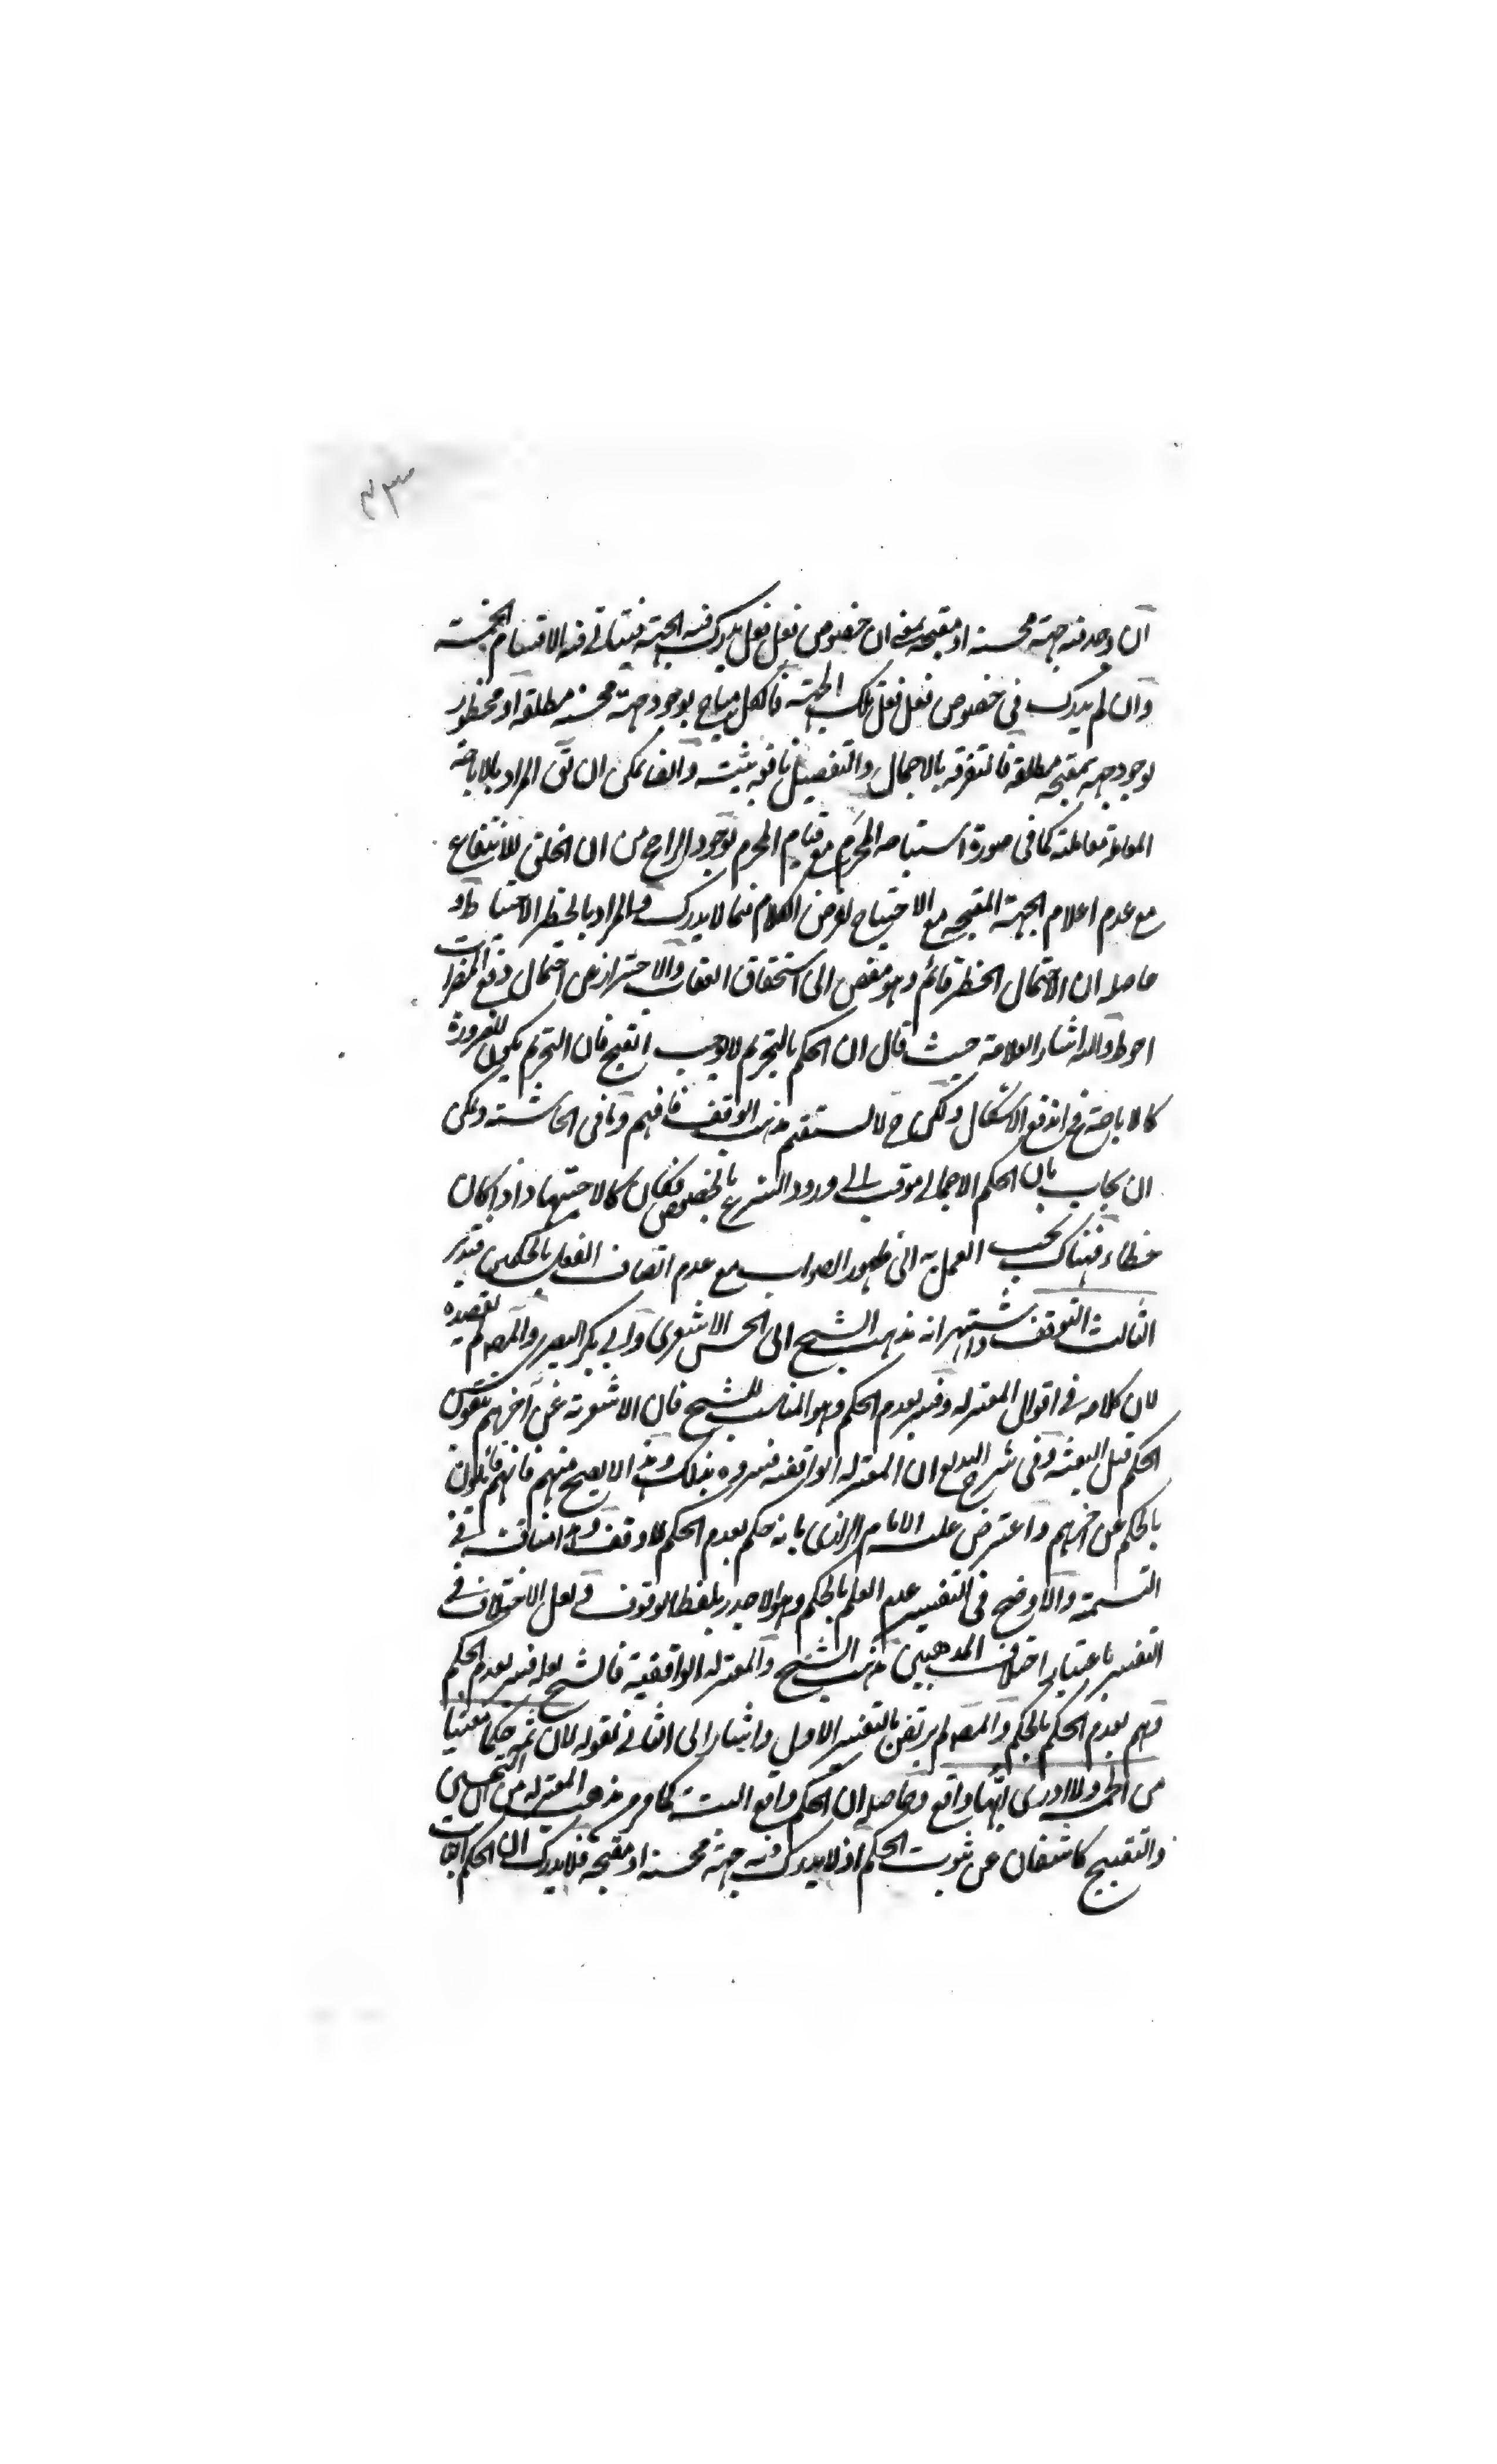 ٣٣
ان وجد فيه جهة محسنة او مقبحة يعني ان خصوص فعل فعل يدرك فيه الجهة فيتأتى فيه الاقسام الخمسة
وان لم يدرك في خصوص فعل فعل تلك الجهة فالكل مباح بوجود جهة محسنة مطلقة او محظور
بوجود جهة مقبحة مطلقة فالتفرقة بالاجمال والتفصيل نافعة وايضا يمكن ان يق المراد بالاباحة
المعاملة معاملته كما في صورة استباحة المحرم مع قيام المحرم لوجود الراجح من ان الخلق للانتفاع
مع عدم اعلام الجهة المقبحة مع الاحتياج لفرض الكلام فيما لا يدرك والمراد بالحظر الاحتياط و
حاصله ان الاحتمال الحظر قائم وهو مفض الى استحقاق العقاب والاحتراز عن احتمال وقع المضرات
احوط واليه اشار العلامة حيث قال ان الحكم بالتحريم لا يوجب القبح فان التحريم يكون للضرورة
كالاباحة فح اندفع الاشكال ولكن ح لا يستقيم مذهب الوقف فافهم وما في الحاشية ويمكن
ان يجاب بان الحكم الاجمالي موقت الى ورود الشرع بالخصوص فكان كالاجتهاد اذا كان
خطاء فهناك يجب العمل به الى ظهور الصواب مع عدم اتصاف الفعل بالحكمين فتدبر
الثالث التوقف واشتهر انه مذهب الشيخ ابى الحسن الاشعري وابي بكر الصيرفي والمصه لم يقصده
لان كلامه في اقوال المعتزلة وفسر بعدم الحكم وهو المناسب للشيخ فان الاشعرية عن آخرهم ينفون
الحكم قبل البعثة وفي شرح البديع ان المعتزلة الواقفة فسروه بذلك وهذا لا يصح منهم فانهم قائلون
بالحكم عن اخرهم واعترض عليه الامام الرازي بانه حكم بعدم الحكم لا وقف وهذا مناقشة في
التسمية والاوضح في التفسير عدم العلم بالحكم وهو الاجدر بلفظ الوقوف ولعل الاختلاف في
التفسير باعتبار اختلاف المذهبين مذهب الشيخ والمعتزلة الواقفية فالشيخ لعله فسر بعدم الحكم
وهم بعدم الحكم بالحكم والمصه لم يرتض بالتفسير الاول واشار الى الثاني بقوله لان ثمه حكما معينا
من الخمسة ولا ادرى ايها واقع وحاصله ان الحكم واقع البتة كما مر من مذهب المعتزلة من ان التحسين
والتقبيح كاشفان عن ثبوت الحكم اذ لا يدرك فيه جهة محسنة او مقبحة فلا يدرك ان الحكم الثابت